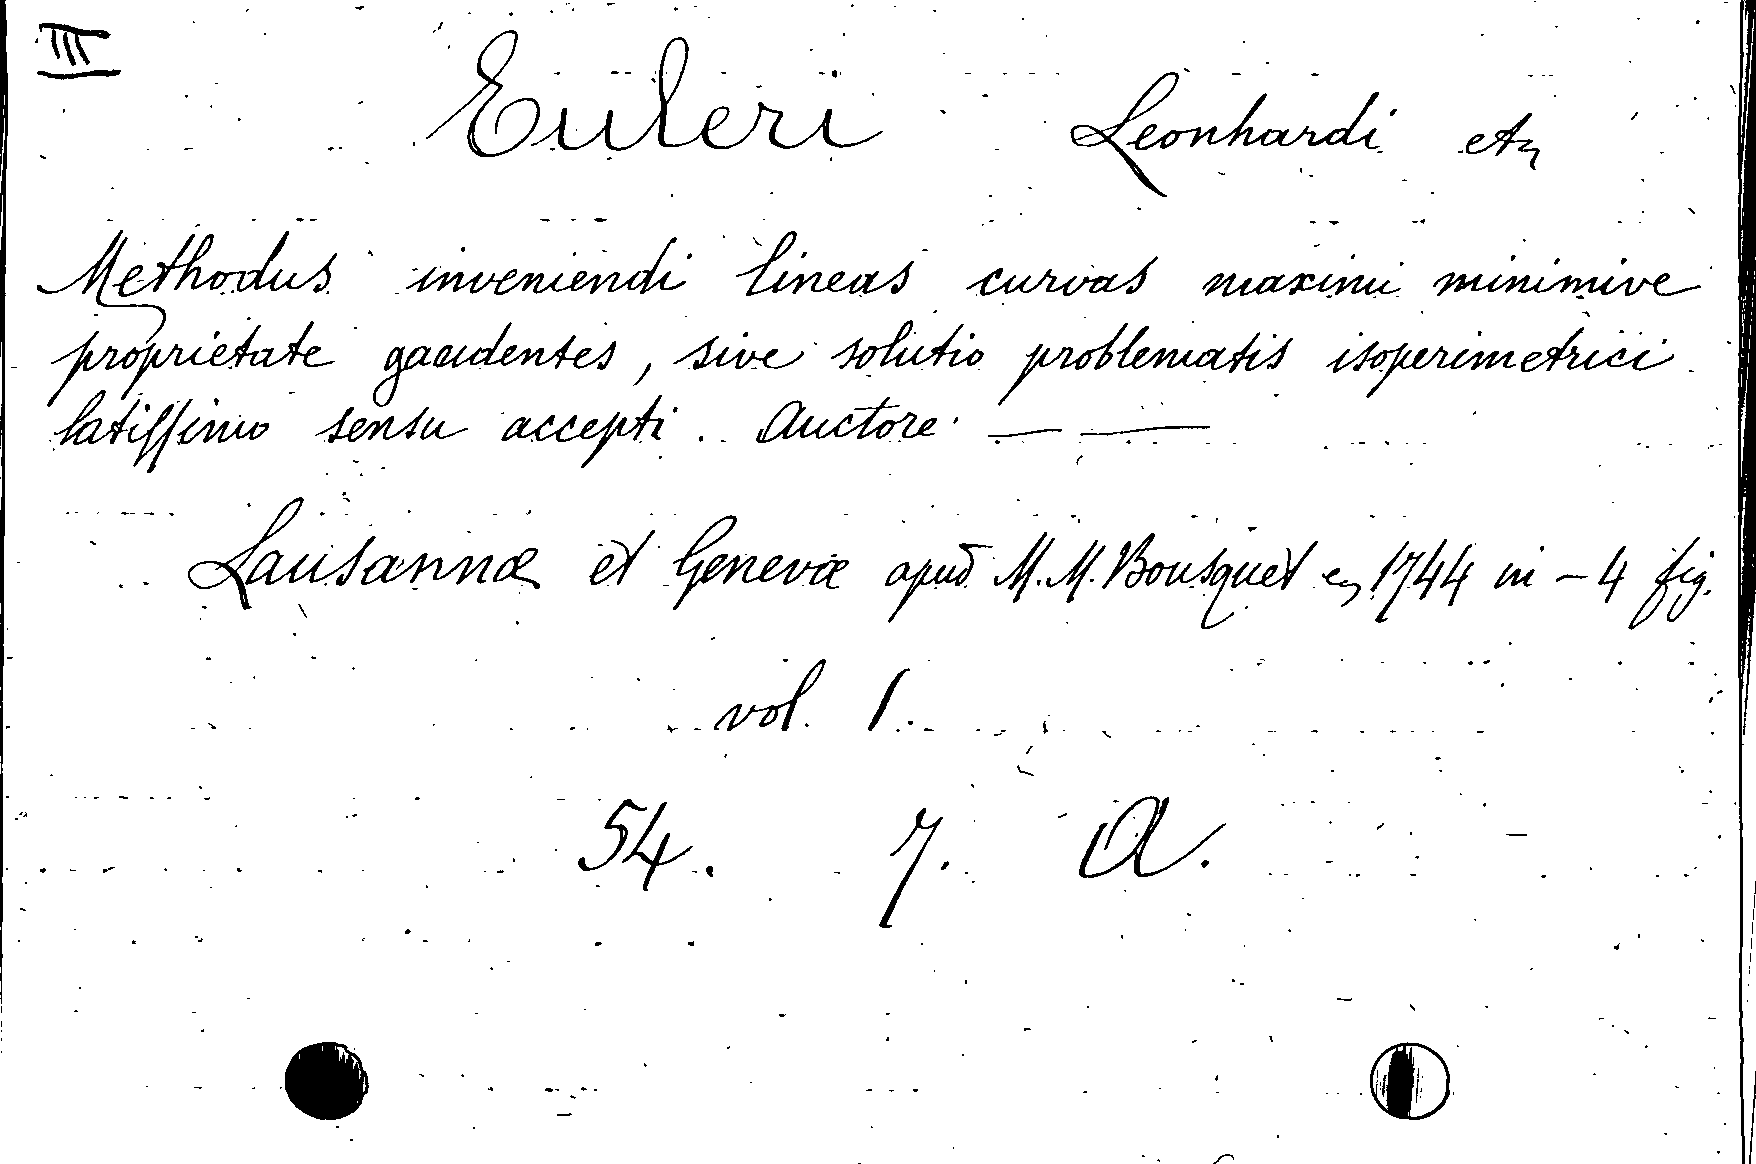 III
Euleri Leonhardi etc
Methodus inveniendi lineas curvas maximi minimive
proprietate gaudentes, sive solutio problematis isoperimetrici
latissimo sensu accepti. Auctore — —
Lausannæ et Genevæ apud M. M. Bousquet etc 1744 in - 4 fig.
vol. 1.
54. 7. A.